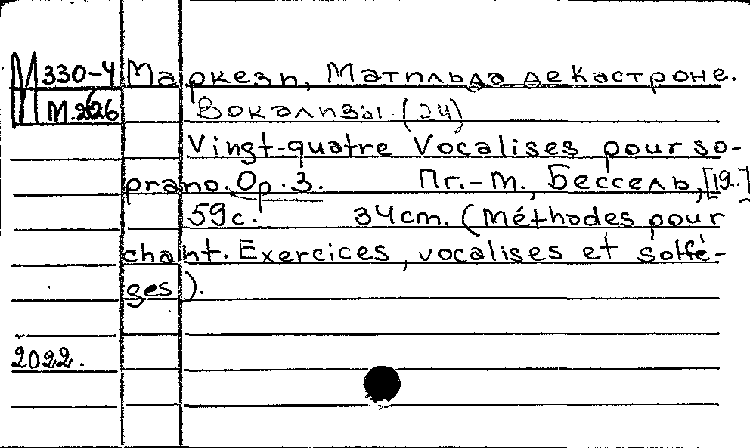 М 330-4 Маркези, Матильда де Кастроне.
М.226 Вокализы. (24)
Vingt-quatre Vocalises pour so-
prano. Op. 3. Пг.-М., Бессель, [19..]
59с. 34cm. (Méthodes pour
chant. Exercices, vocalises et solfè-
ges).
2022.